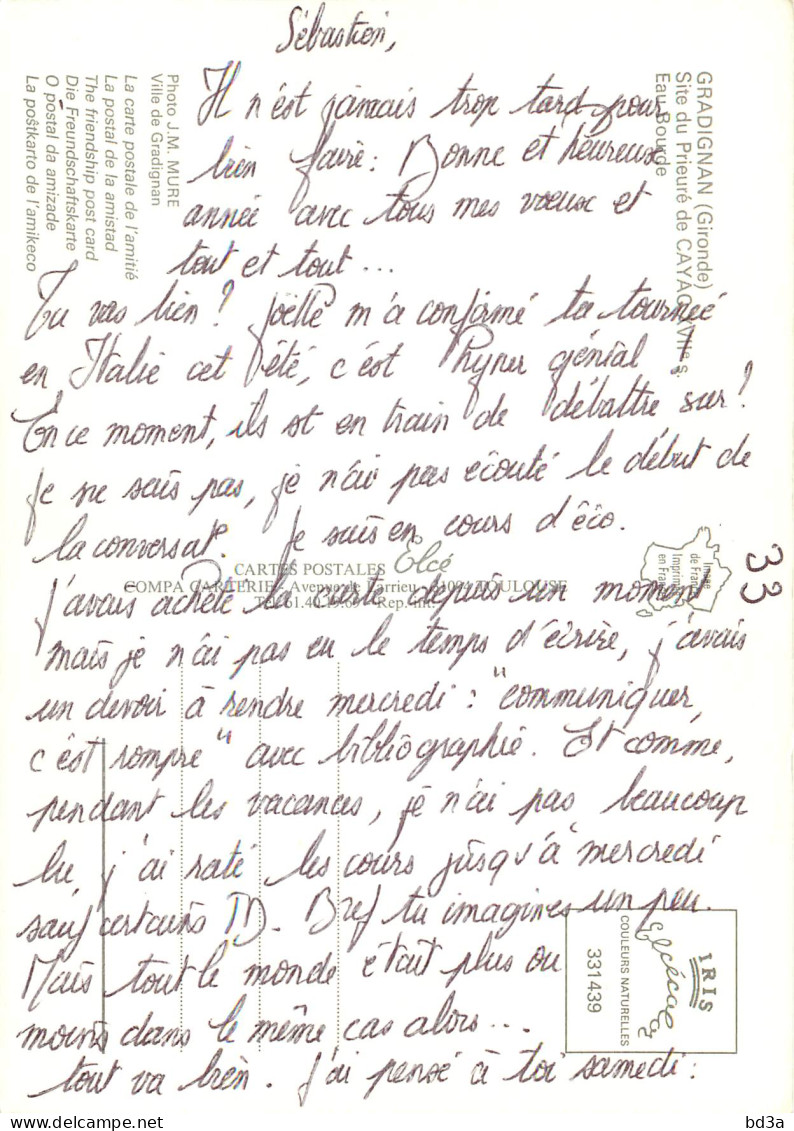 Sébastien,
Il n'est jamais trop tard pour
bien faire : Bonne et heureuse
année avec tous mes vœux et
tout et tout ...
Tu vas bien ? Joëlle m'a confirmé ta tournée
en Italie cet été, c'est hyper génial !
En ce moment, ils st en train de débattre sur ?
Je ne sais pas, je n'ai pas écouté le début de
la conversat°. Je suis en cours d'éco.
J'avais acheté la carte depuis un moment
mais je n'ai pas eu le temps d'écrire, j'avais
un devoir à rendre mercredi : "communiquer,
c'est rompre" avec bibliographie. Et comme,
pendant les vacances, je n'ai pas beaucoup
lu, j'ai raté les cours jusqu'à mercredi
sauf certains TD. Bref tu imagines un peu.
Mais tout le monde était plus ou
moins dans le même cas alors ...
tout va bien. J'ai pensé à toi samedi :
33
GRADIGNAN (Gironde)
Site du Prieuré de CAYAC XVIIe s.
Eau Bourde
Photo J.M. MURE
Ville de Gradignan
La carte postale de l'amitié
La postal de la amistad
The friendship post card
Die Freundschaftskarte
O postal da amizade
La poŝtkarto de l'amikeco
CARTES POSTALES Elcé
COMPA CARTERIE - Avenue de Larrieu - 31094 TOULOUSE
Image
de France
Imprimé
en France
IRIS
COULEURS NATURELLES
331439
bd3a